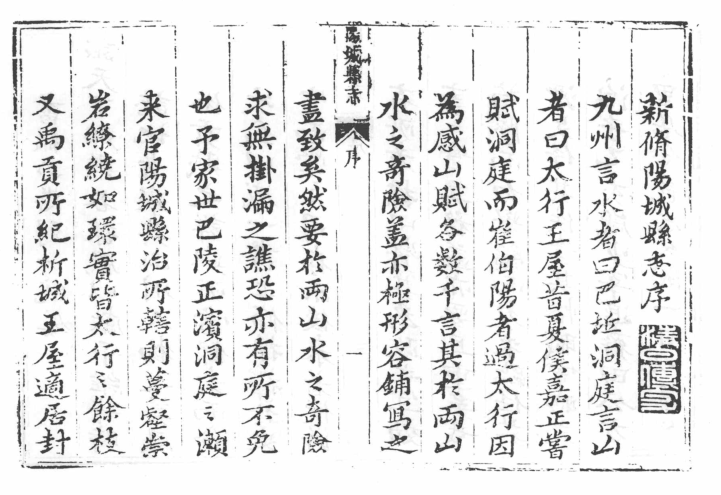 新脩陽城縣志序
九州言水者曰巴丘洞庭言山
者曰太行王屋昔夏侯嘉正嘗
賦洞庭而崔伯陽者過太行因
為感山賦各数千言其於兩山
水之奇險盖亦極形容鋪寫之
陽城縣志
序
一
盡致矣然要於兩山水之奇險
求無掛漏之譙恐亦有所不免
也予家世巴陵正濱洞庭之瀬
来官陽城縣治所轄則蔓壑崇
岩繚繞如環實皆太行之餘枝
又禹貢所紀析城王屋適居封